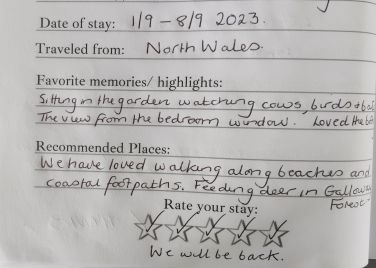 Date of stay: 1/9 - 8/9 2023.
Traveled from: North Wales.
Favorite memories/ highlights:
Sitting in the garden watching cows, birds +
The view from the bedroom window. Loved the
Recommended Places:
We have loved walking along beaches and
coastal footpaths. Feeding deer in Galloway
Forest
Rate your stay:
We will be back.